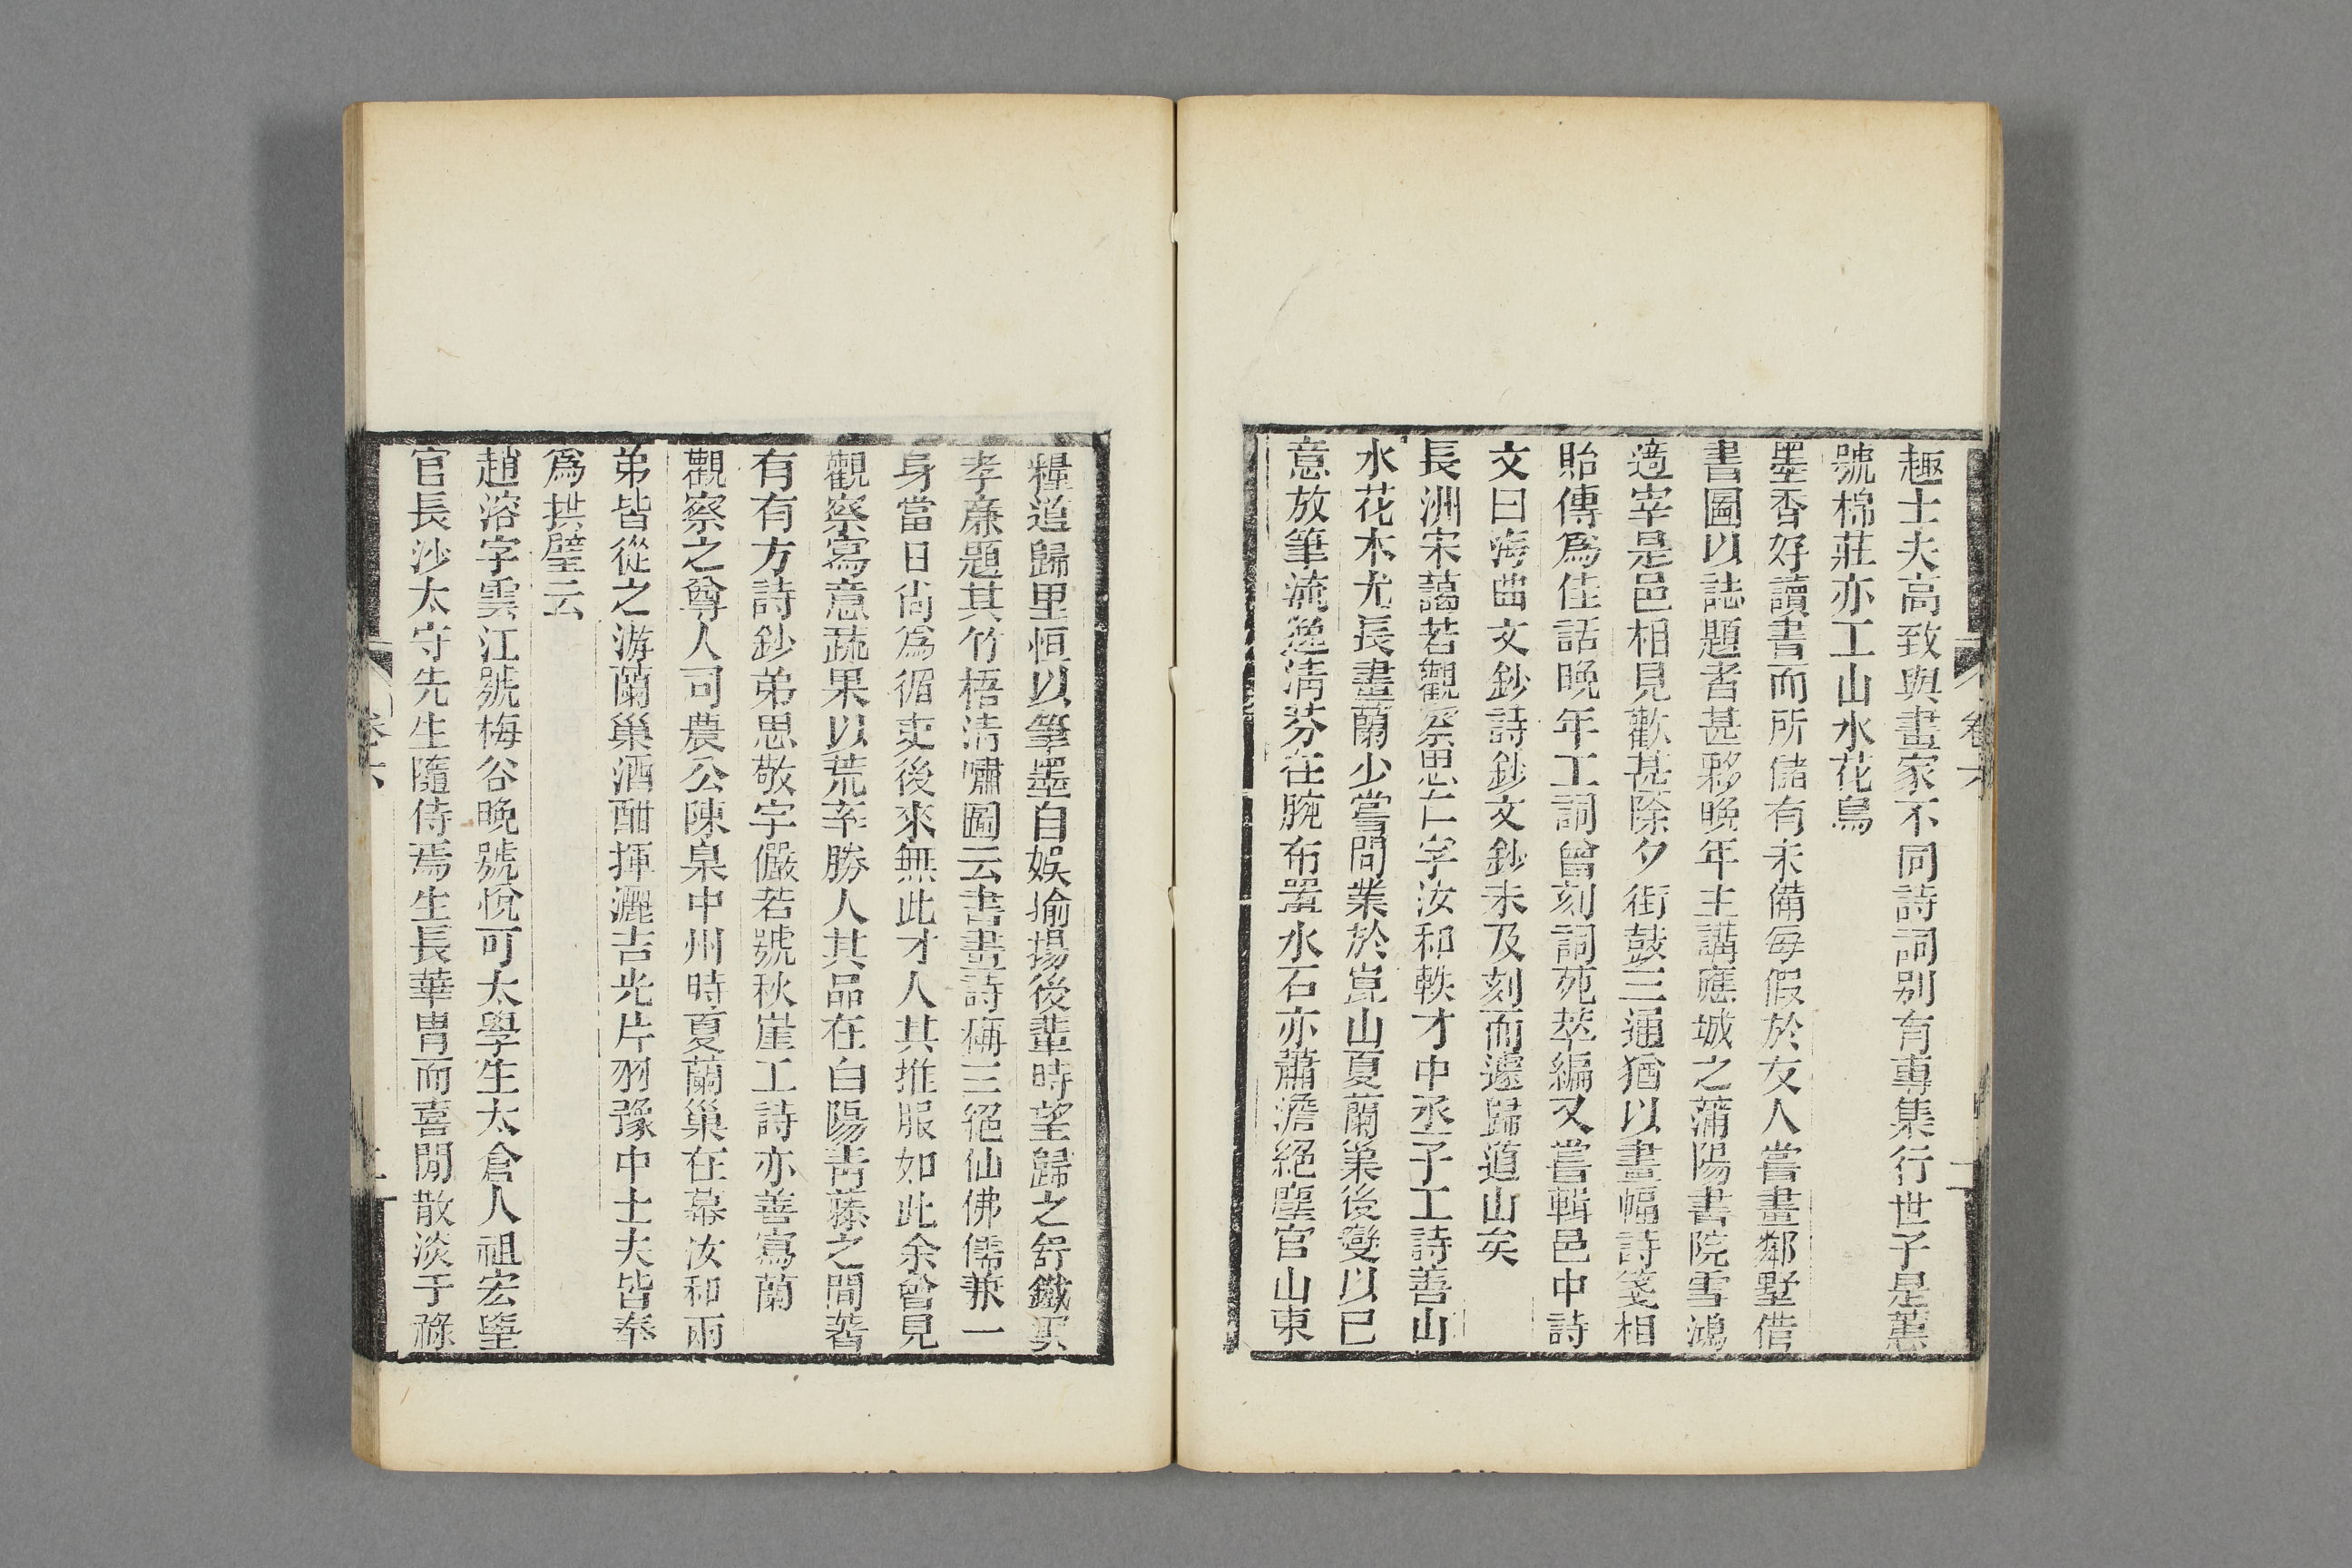 趣士夫高致與畫家不同詩詞別有專集行世子是蕙
號棉莊亦工山水花鳥
墨香好讀書而所儲有未備每假於友人嘗畫鄰墅借
書圖以誌題者甚夥晚年主講應城之蒲陽書院雪鴻
適宰是邑相見歡甚除夕街鼓三通猶以畫幅詩箋相
貽傳爲佳話晚年工詞曾刻詞苑萃編又嘗輯邑中詩
文曰海曲文鈔詩鈔文鈔未及刻而遽歸道山矣
長洲宋藹若觀察思仁字汝和軼才中丞子工詩善山
水花木尤長畫蘭少嘗問業於崑山夏蘭巢後變以已
意放筆流逸清芬在腕布置水石亦蕭澹絕塵官山東
卷六
二
糧道歸里恒以筆墨自娛揄揚後輩時望歸之舒鐵雲
孝廉題其竹梧清嘯圖云書畫詩稱三絕仙佛儒兼一
身當日尙爲循吏後來無此才人其推服如此余曾見
觀察寫意蔬果以荒率勝人其品在白陽靑藤之間著
有有方詩鈔弟思敬字儼若號秋崖工詩亦善寫蘭
觀察之尊人司農公陳臬中州時夏蘭巢在幕汝和兩
弟皆從之游蘭巢酒酣揮灑吉光片羽豫中士夫皆奉
爲拱璧云
趙溶字雲江號梅谷晚號悅可太學生太倉人祖宏
官長沙太守先生隨侍焉生長華胄而喜閒散淡于祿
卷六